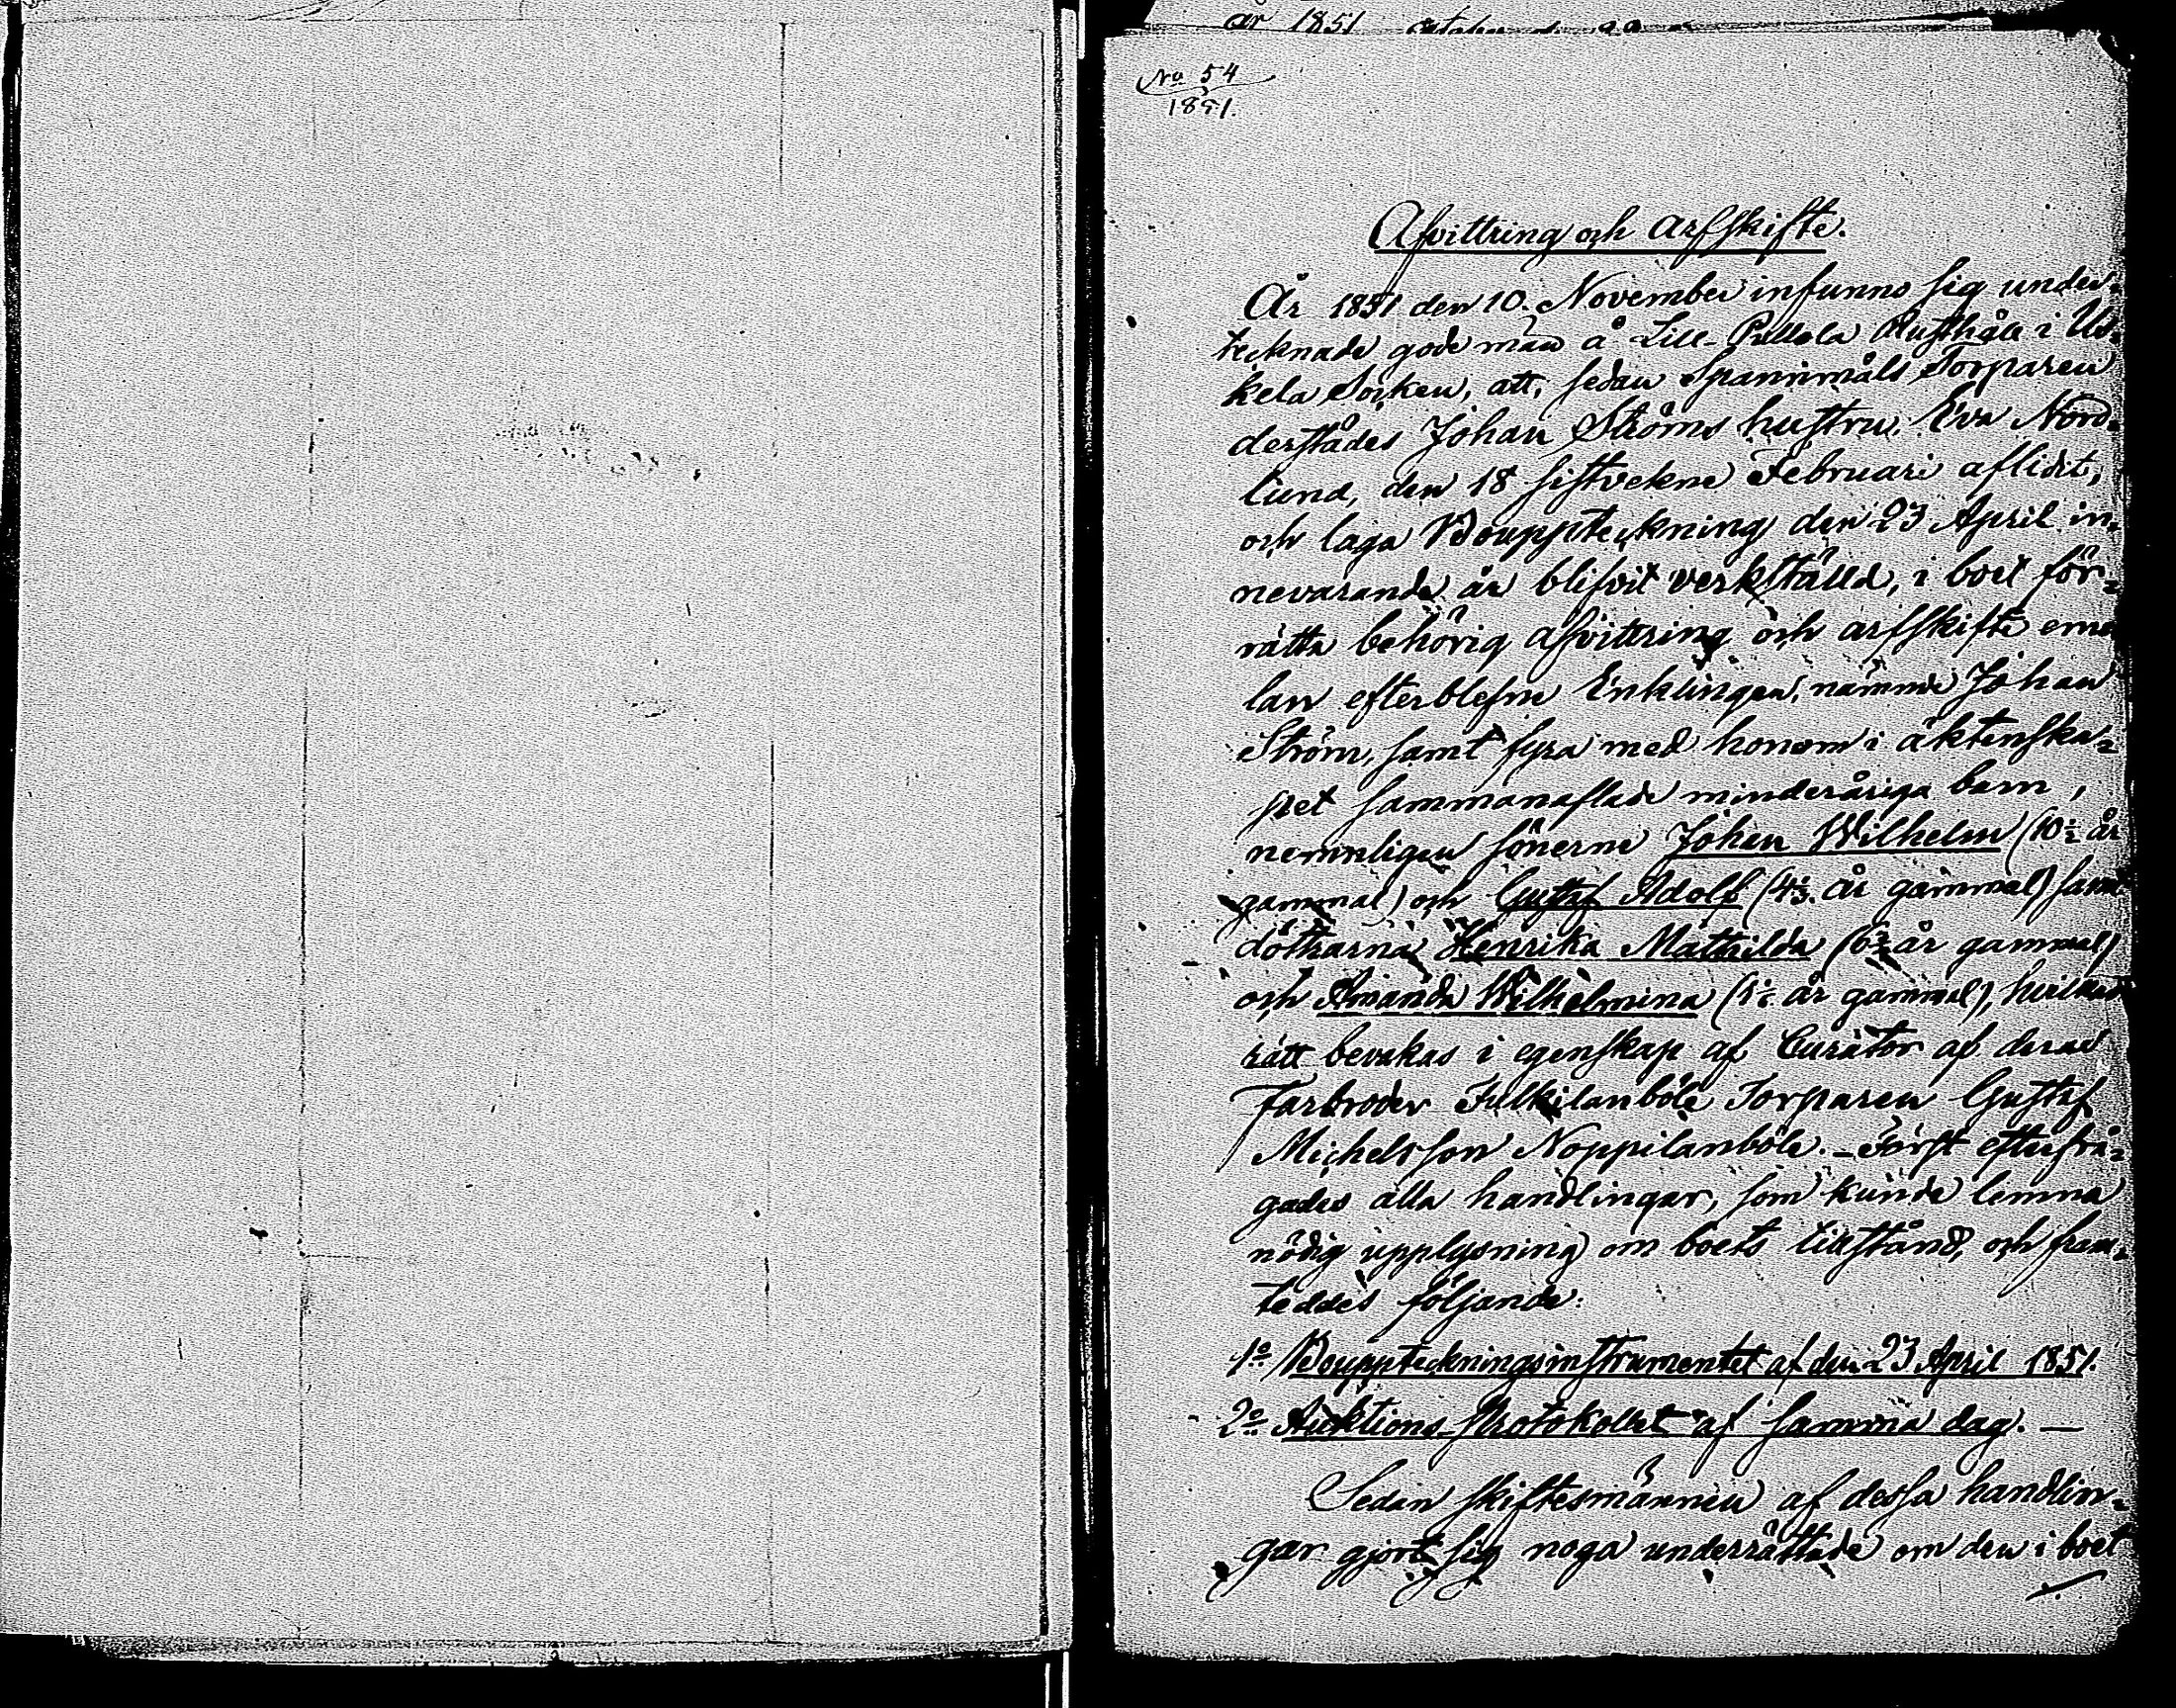 år 1851
No 54
1851.
Afvittring och Arfskifte.
År 1851 den 10 November infunno sig under-
tecknade gode män å Lill-Pullola Rusthåll i Us-
kela Socken, att, sedan Spannmåls Torparen
derstädes Johan Ströms hustru, Eva Nord-
lund, den 18 sistvekne Februari aflidit,
och laga Bouppteckning den 23 April in-
nevarande år blifvit verkställd, i boet för-
rätta behörig afvittring och arfskifte emel
lan efterblefne Enklingen, nämnde Johan
Ström, samt fyra med honom i äktenska-
pet sammanaflade minderåriga barn,
nemnligen sönerne Johan Wilhelm (10½ år
gammal) och Gustaf Adolf (4⅓ år gammal) samt
döttrarna Henrika Mathilda år gammal)
och Amanda Wilhelmina år gammal), hvilkas
rätt bevakas i egenskap af Curator af deras
Farbroder Torparen Gustaf
Michelsson Noppilanböle. – Först efterfrå-
gades alla handlingar, som kunde lemna
nödig upplysning om boets tillstånd, och fram-
teddes följande:
1o Bouppteckningsinstrumentet af den 23 April 1851.
2o Auktions-Protokollet af samma dag. —
Sedan skiftesmännen af dessa handlin-
gar gjort sig noga underrättade om den i boet